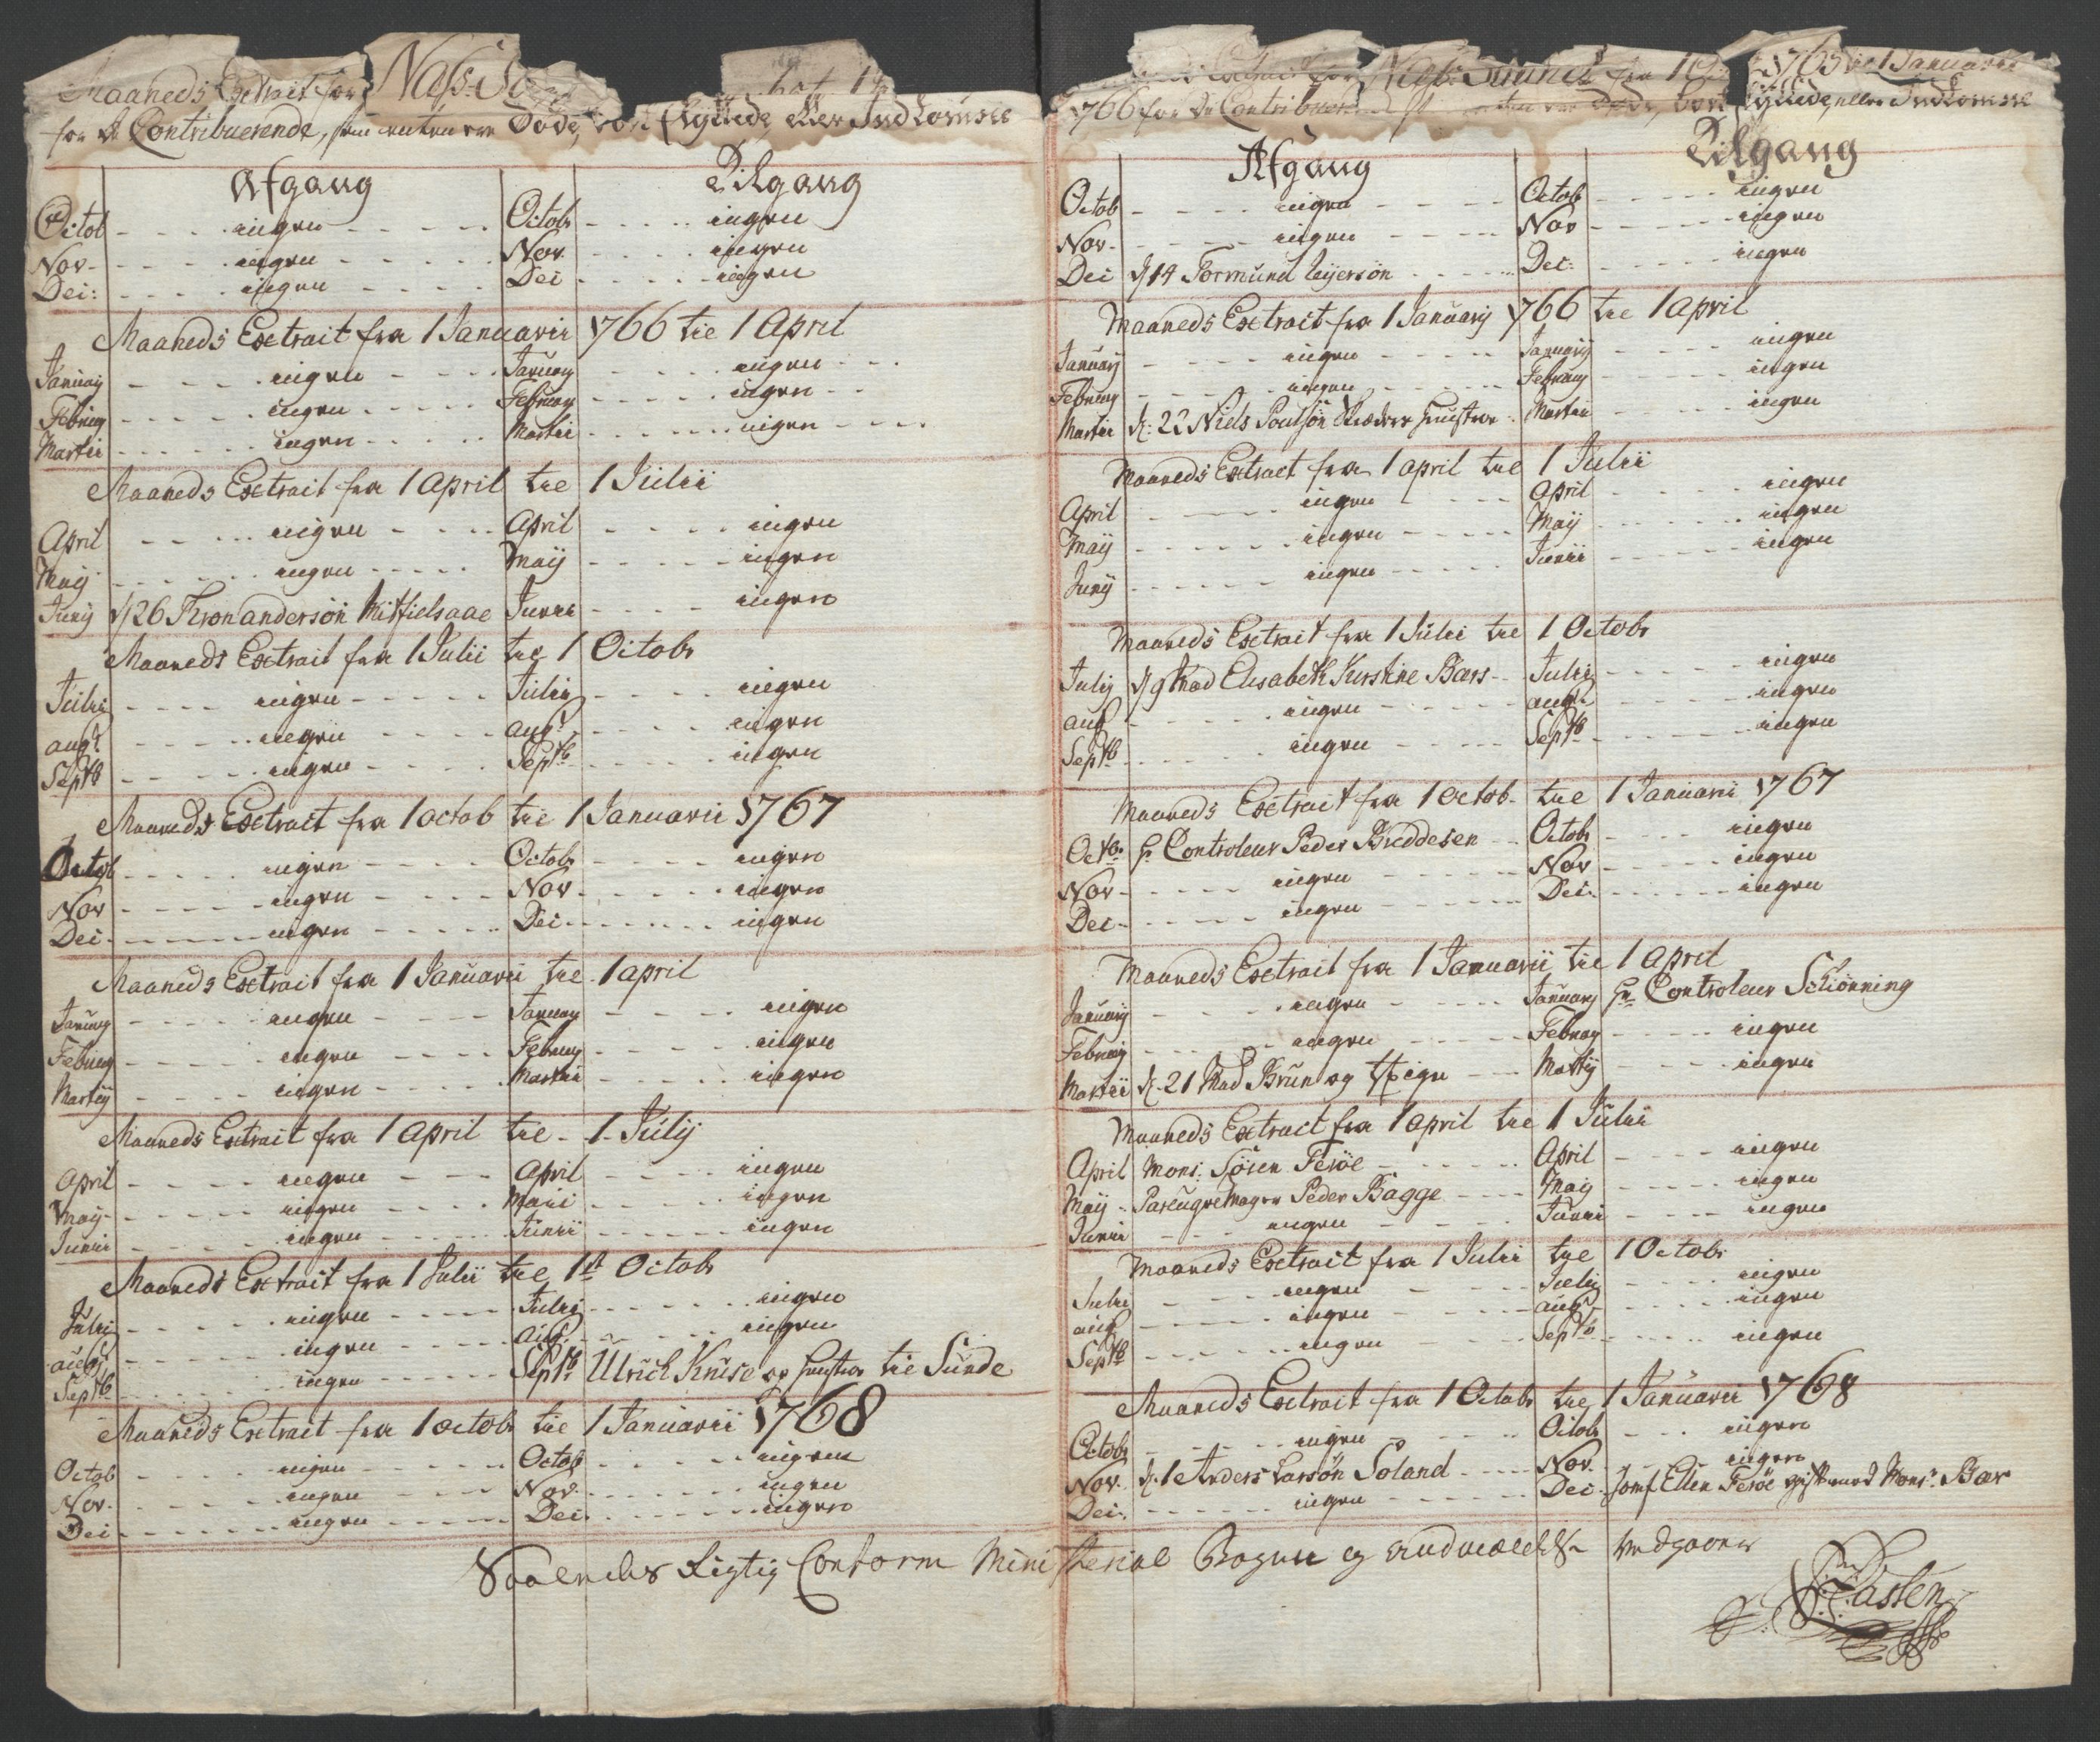 Maaneds Extrait for Næs-So
for de Contribuerende, som enten ere Døde, bort flyttede eller Indkomne
Afgang Tilgang
Octob - - - - ingen - - - - Octobr - - - - ingen
Nov - - - - ingen - - - - Nov. - - - - ingen
Dec: - - - - ingen - - - - Dec - - - - ingen
Maaneds Extrait fra 1 Januarii 1766 til 1 April
Januarij - - - - ingen - - - - Januarij - - - - ingen
Februarij - - - - ingen - - - - Februarij - - - - ingen
Martii - - - - ingen - - - - Martii - - - - ingen
Maaneds Extrait fra 1 April til 1 Julii
April - - - - ingen - - - - April - - - - ingen
Maij - - - - ingen - - - - Maij - - - - ingen
Junij d 26 Tron andersøn Junii - - - - ingen
Maaneds Extrait fra 1 Julii til 1 Octobr
Julii - - - - ingen - - - - Julii - - - - ingen
augt. - - - - ingen - - - - augt. - - - - ingen
Septb - - - - ingen - - - - Septb - - - - ingen
Maaneds Extrait fra 1 octob til 1 Januarii 1767
Octob - - - - ingen - - - - Octobr - - - - ingen
Nov - - - - ingen - - - - Nov - - - - ingen
Dec - - - - ingen - - - - Dec - - - - ingen
Maaneds Extrait fra 1 Januarii til 1 april
Januarij - - - - ingen - - - - Januarij - - - - ingen
Februarij - - - - ingen - - - - Februarij - - - - ingen
Martij - - - - ingen - - - - Martii - - - - ingen
Maaneds Extrait fra 1 April til - 1 Julij
April - - - - ingen - - - - April - - - - ingen
Maij - - - - ingen - - - - Maii - - - - ingen
Junii - - - - ingen - - - - Junii - - - - ingen
Maaneds Extrait fra 1 Julii til 1st Octobr
Julii - - - - ingen - - - - Julii - - - - ingen
aug. - - - - ingen - - - - aug. - - - - ingen
Septb - - - - ingen - - - - Septb Ulrich Kruse og hustroe til Sunde
Maaneds Extrait fra 1 octobr til 1 Januarii 1768
Octob - - - - ingen - - - - Octob - - - - ingen
Nov. - - - - ingen - - - - Nov. - - - - ingen
Dec - - - - ingen - - - - Dec. - - - - ingen
Extrait for fra 1 1765 til 1 Januarii
1766 for de Contribuerende Døde, bort flyttede, eller Indkomne
Afgang Tilgang
Octob - - - - ingen - - - - Octob - - - - ingen
Nov - - - - ingen - - - - Nov - - - - ingen
Dec d 14 Tormund Rejersøn - - - - Dec: - - - - ingen
Maaneds Extrait fra 1 Januarij 1766 til 1 april
Januarij - - - - ingen - - - - Januarij - - - - ingen
Februarij - - - - ingen - - - - Februarij - - - - ingen
Martii d: 22 Niels Poulsøn Skræders hustroe Martii - - - - ingen
Maaneds Extract fra 1 april til 1 Julii
April - - - - ingen - - - - April - - - - ingen
Maij - - - - ingen - - - - Maij - - - - ingen
Junij - - - - ingen - - - - Junii - - - - ingen
Maaneds Extrait fra 1 Julii til 1 Octobr
Julij d 9 Mad Elisabeth Kirstine Bærs - - Julii - - - - ingen
aug - - - - ingen - - - - augt. - - - - ingen
Septb - - - - ingen - - - - Septb - - - - ingen
Maaneds Extrait fra 1 octob. til 1 Januarii 1767
Octbr Hr Controleur Peder Buddesen - - Octobr - - - - ingen
Nov - - - - ingen - - - - Nov - - - - ingen
Dec - - - - ingen - - - - Dec. - - - - ingen
Maaneds Extrait fra 1 Januarii til 1 April
Januarij - - - - ingen - - - - Januarij Hr Controleur Schiønning
Februarij - - - - ingen - - - - Februarij - - - - ingen
Martii d. 21 Mad Brun og - - Martij - - - - ingen
Maaneds Extract fra 1 april til 1 Julii
April Mons: Søren Ferøe - - - - April - - - - ingen
Maij Peder Bagge - - - - Maij - - - - ingen
Junii - - - - ingen - - - - Junii - - - - ingen
Maaneds Extrait fra 1 Julii til 1 Octobr
Julii - - - - ingen - - - - Julij - - - - ingen
aug - - - - ingen - - - - augt. - - - - ingen
Septb - - - - ingen - - - - Septb - - - - ingen
Maaneds Extrait fra 1 Octobr til 1 Januarii 1768
Octobr - - - - ingen - - - - Octobr - - - - ingen
Nov. d. 1 Anders Larsøn Soland - - - - Nov. - - - - ingen
Dec: - - - - ingen - - - - Dec. Jomf. Ellen Ferøe gift med Mons: Bær
Saaledes Rigtig Conform Ministerial Bogen og